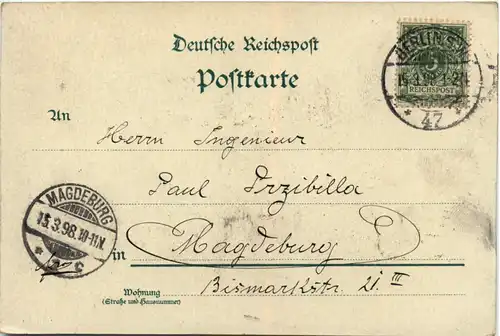 Deutsche Reichspost
Postkarte
BERLIN S.W.
15.3.98.1-2N.
* 47 *
REICHSPOST
An
Herrn Ingenieur
Paul Przibilla
MAGDEBURG
15.3.98.10-11N.
* c
in Magdeburg
Bismarkstr. 21 III
Wohnung
(Straße und Hausnummer)